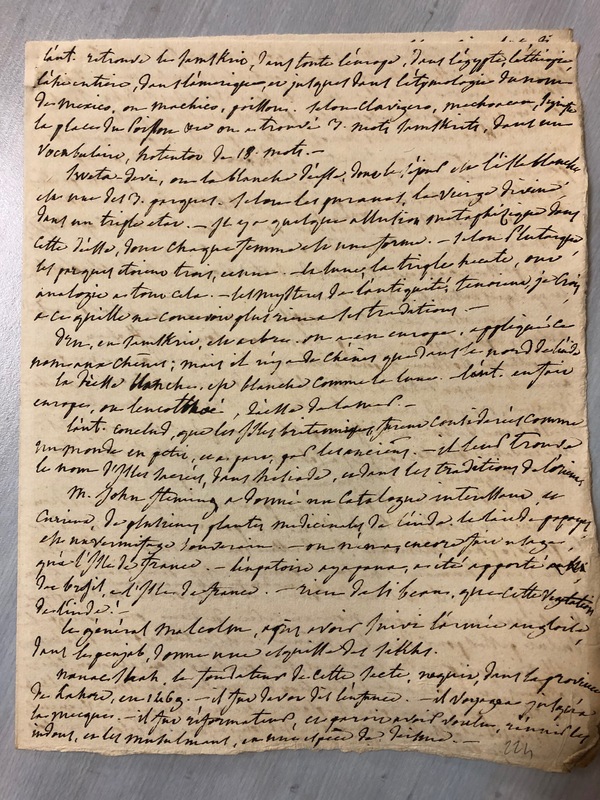 l'aut. retrouve le samskrit, dans toute l'europe, dans l'égypte, l'éthiopie
l'asie entière, dans l'amérique, et jusques dans l'étymologie du nom
de mexico, ou machico, poisson. selon clavigero, mechoacan, signifie
la place du poisson on a trouvé 3. mots samskrits, dans un
vocabulaire, hotentot de 18. mots. —
sweta-devi, ou la blanche déesse, dont le séjour est l'isle blanche
est une des 3. parques. selon les puranas, la vierge divine
dans un triple etat. — il y a quelque allusion métaphisique dans
cette déesse, dont chaque femme est une forme. — selon Plutarque
les parques etoient trois, et une. — la lune, la triple hecate, ont
analogie a tout cela. — les mystères de l'antiquité, tenoient je crois
a ce qu'elle ne concevoit plus rien a ses traditions. —
en samskrit, est arbre. on a en europe, appliqué ce
nom aux chênes; mais il n'y a de chênes que dans le nord de l'inde
la déesse blanche, est blanche comme la lune. l'aut. en fait
europe, ou leucothoé, déesse de la mer. —
l'aut. conclud, que les isles britanniques, furent considerées comme
un monde en petit, et a part, par les anciens. — il leur trouve
le nom d'isles sacrées, dans hesiode, et dans les traditions de l'orient.
M. John fleming a donné un catalogue interessant, et
curieux, de plusieurs plantes medicinales de l'inde. le lait de papayer
est un vermifuge souverain — on n'en a, encore fait usage,
qu'a l'isle de france. — l'eupatoire ayapana, a été apporté
du bresil, a l'isle de france. — rien de si beau, que cette végétation
de l'inde! —
le général malcolm, après avoir suivi l'armée angloise,
dans le penjab, donne une esquisse des sikhs.
nanac shah, le fondateur de cette secte, naquit, dans la province
de lahore, en 1469. — il fut devot dès l'enfance. — il voyagea jusqu'à
la mecque. — il fut réformateur, et paroit avoir voulu, réunir les
indous, et les musulmans, en une espèce de déisme. —
224